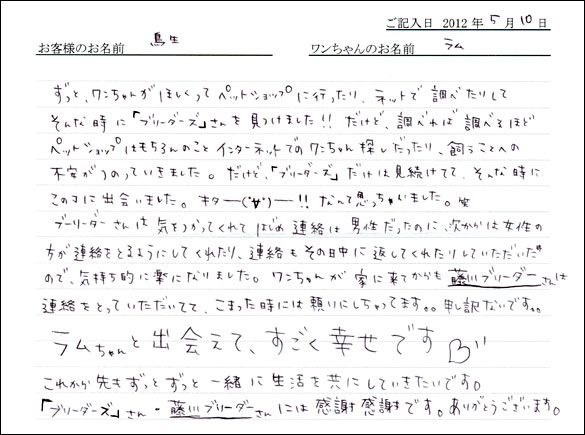 ご記入日 2012年5月10日
お客様のお名前 鳥生 ワンちゃんのお名前 ラム
ずっと、ワンちゃんがほしくってペットショップに行ったり、ネットで調べたりして
そんな時に「ブリーダーズ」さんを見つけました!! だけど、調べれば調べるほど
ペットショップはもちろんのことインターネットでのワンちゃん探しだったり、飼うことへの
不安がつのっていきました。だけど、「ブリーダーズ」だけは見続けてて、そんな時に
このコに出会いました。キター(゚∀゚)ー!! なんて思っちゃいました。笑
ブーリーダーさんは気をつかってくれてはじめ連絡は男性だったのに、次からは女性の
方が連絡をとるようにしてくれたり、連絡もその日中に返してくれたりしていただいた
ので、気持ち的に楽になりました。ワンちゃんが家に来てからも藤川ブリーダーさんは
連絡をとっていただいてて、こまった時には頼りにしちゃってます。。申し訳ないです。。
ラムちゃんと出会えて、すごく幸せです
これから先もずっとずっと一緒に生活を共にしていきたいです。
「ブリーダーズ」さん・藤川ブリーダーさんには感謝感謝です。ありがとうございます。